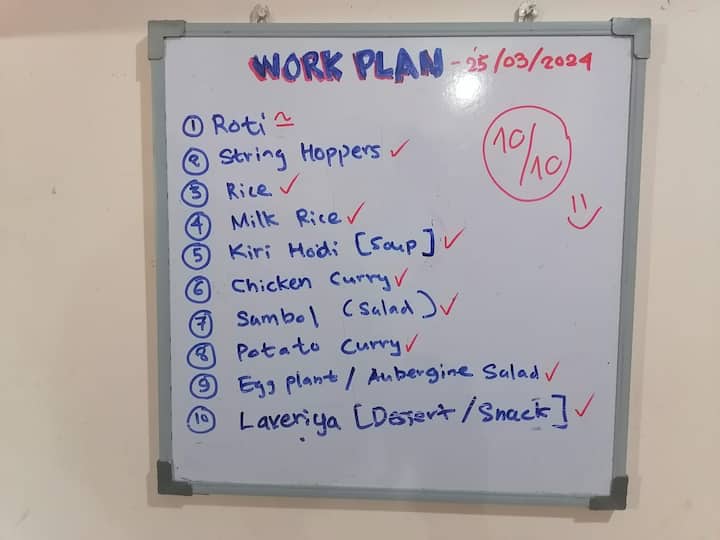 WORK PLAN - 25/03/2024
① Roti ~
② String Hoppers ✓
③ Rice ✓
④ Milk Rice ✓
⑤ Kiri Hodi [Soup] ✓
⑥ Chicken Curry ✓
⑦ Sambol (Salad) ✓
⑧ Potato Curry ✓
⑨ Egg plant / Aubergine Salad ✓
⑩ Laveriya [Desert/Snack] ✓
10/10